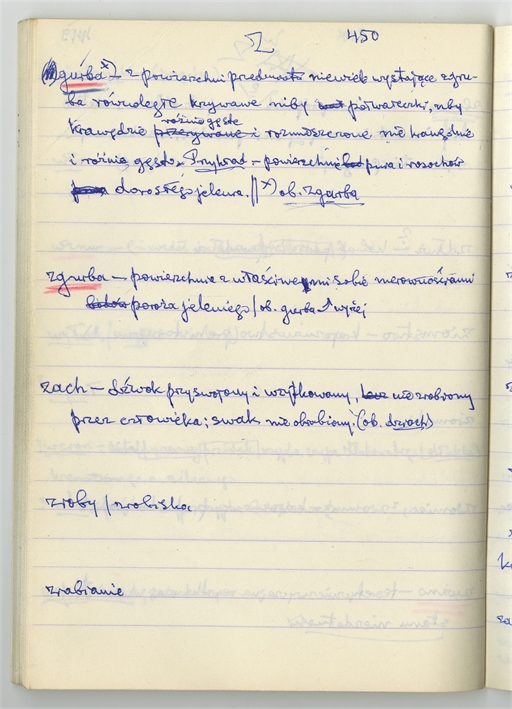 Z 450
gurba x) – z powierzchni przedmiotu niewiele wystające zgru-
ba równoległe krzywawe niby półwałeczki, niby
rożnie gęste
krawędzie przerywane i rozmieszczone nie krawędzie
i rożnie gęsto. Przykład – powierzchnie pnia i rosochów
dorosłego jelenia. || x) ob. zgurba
zgurba – powierzchnia z właściwymi sobie nierównościami
poroża jeleniego / ob. gurba ↑ wyżej
zach – dźwok przyswojony i użytkowany, nie zrobiony
przez człowieka; swak nie obrobiony. (ob. dziach)
zroby / zrobiska
zrabianie